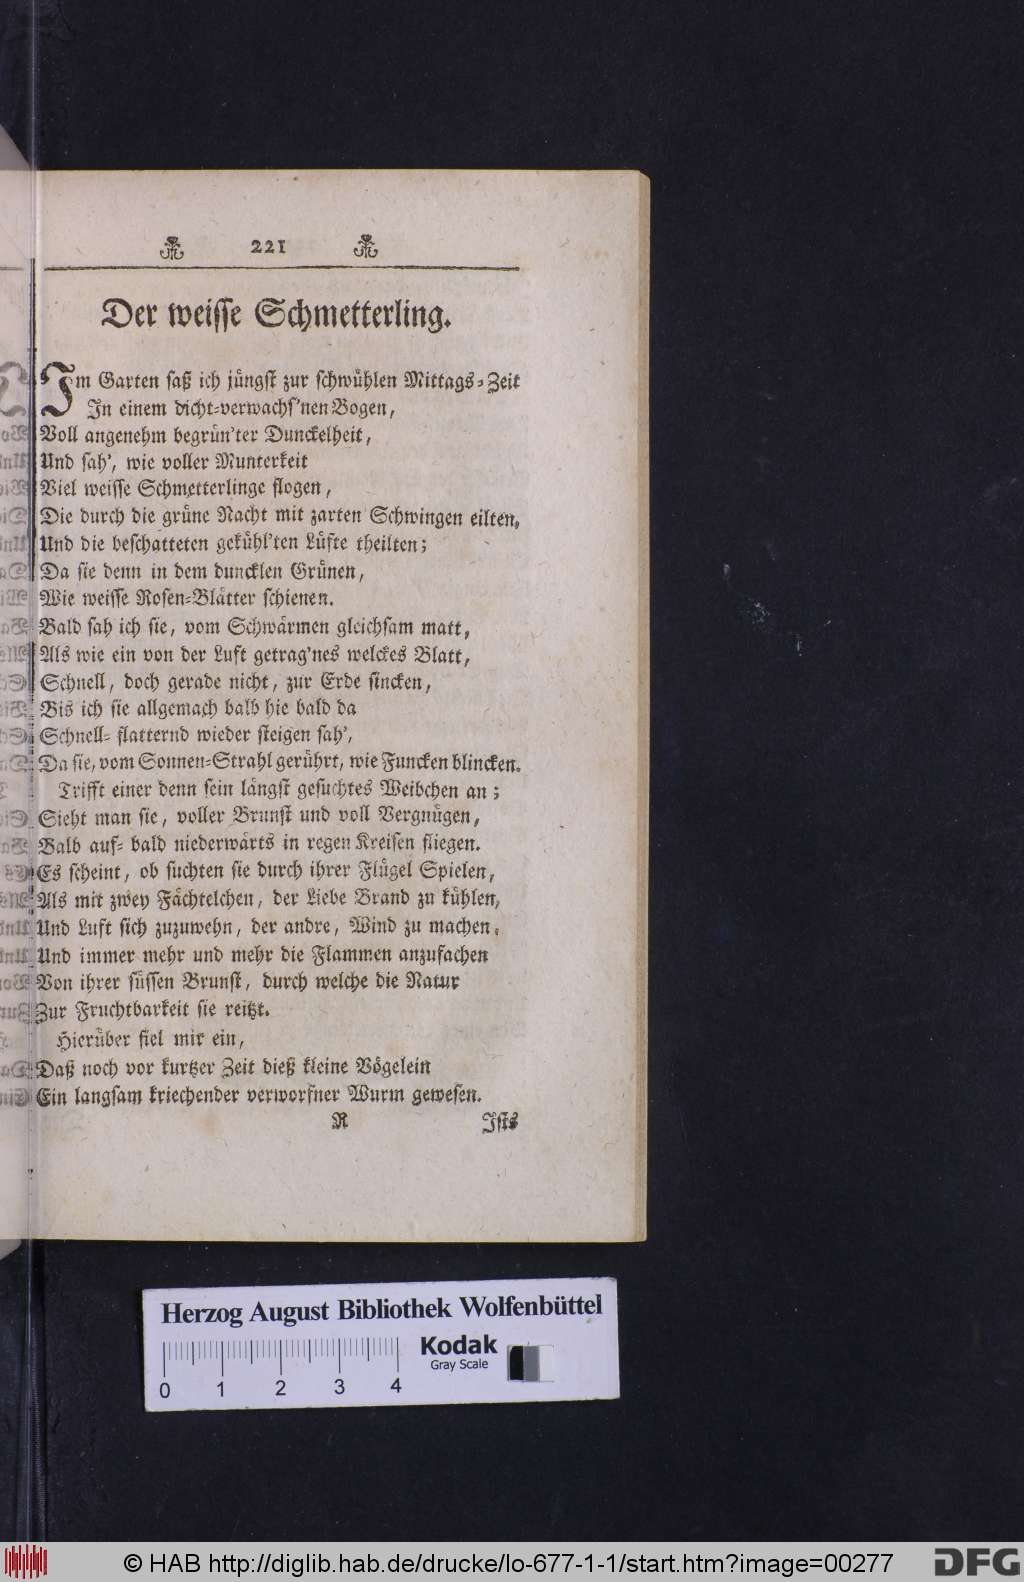 221
Der weisse Schmetterling.
Im Garten saß ich jüngst zur schwühlen Mittags-Zeit
In einem dicht-verwachs'nen Bogen,
Voll angenehm begrün'ter Dunckelheit,
Und sah', wie voller Munterkeit
Viel weisse Schmetterlinge flogen,
Die durch die grüne Nacht mit zarten Schwingen eilten,
Und die beschatteten gekühl'ten Lüfte theilten;
Da sie denn in dem duncklen Grünen,
Wie weisse Rosen-Blätter schienen.
Bald sah ich sie, vom Schwärmen gleichsam matt,
Als wie ein von der Luft getrag'nes welckes Blatt,
Schnell, doch gerade nicht, zur Erde sincken,
Bis ich sie allgemach bald hie bald da
Schnell-flatternd wieder steigen sah',
Da sie, vom Sonnen-Strahl gerührt, wie Funcken blincken.
Trifft einer denn sein längst gesuchtes Weibchen an;
Sieht man sie, voller Brunst und voll Vergnügen,
Bald auf- bald niederwärts in regen Kreisen fliegen.
Es scheint, ob suchten sie durch ihrer Flügel Spielen,
Als mit zwey Fächtelchen, der Liebe Brand zu kühlen,
Und Luft sich zuzuwehn, der andre, Wind zu machen,
Und immer mehr und mehr die Flammen anzufachen
Von ihrer süssen Brunst, durch welche die Natur
Zur Fruchtbarkeit sie reitzt.
Hierüber fiel mir ein,
Daß noch vor kurtzer Zeit dieß kleine Vögelein
Ein langsam kriechender verworfner Wurm gewesen.
R Ists
Herzog August Bibliothek Wolfenbüttel
Kodak
Gray Scale
0 1 2 3 4
© HAB http://diglib.hab.de/drucke/lo-677-1-1/start.htm?image=00277
DFG